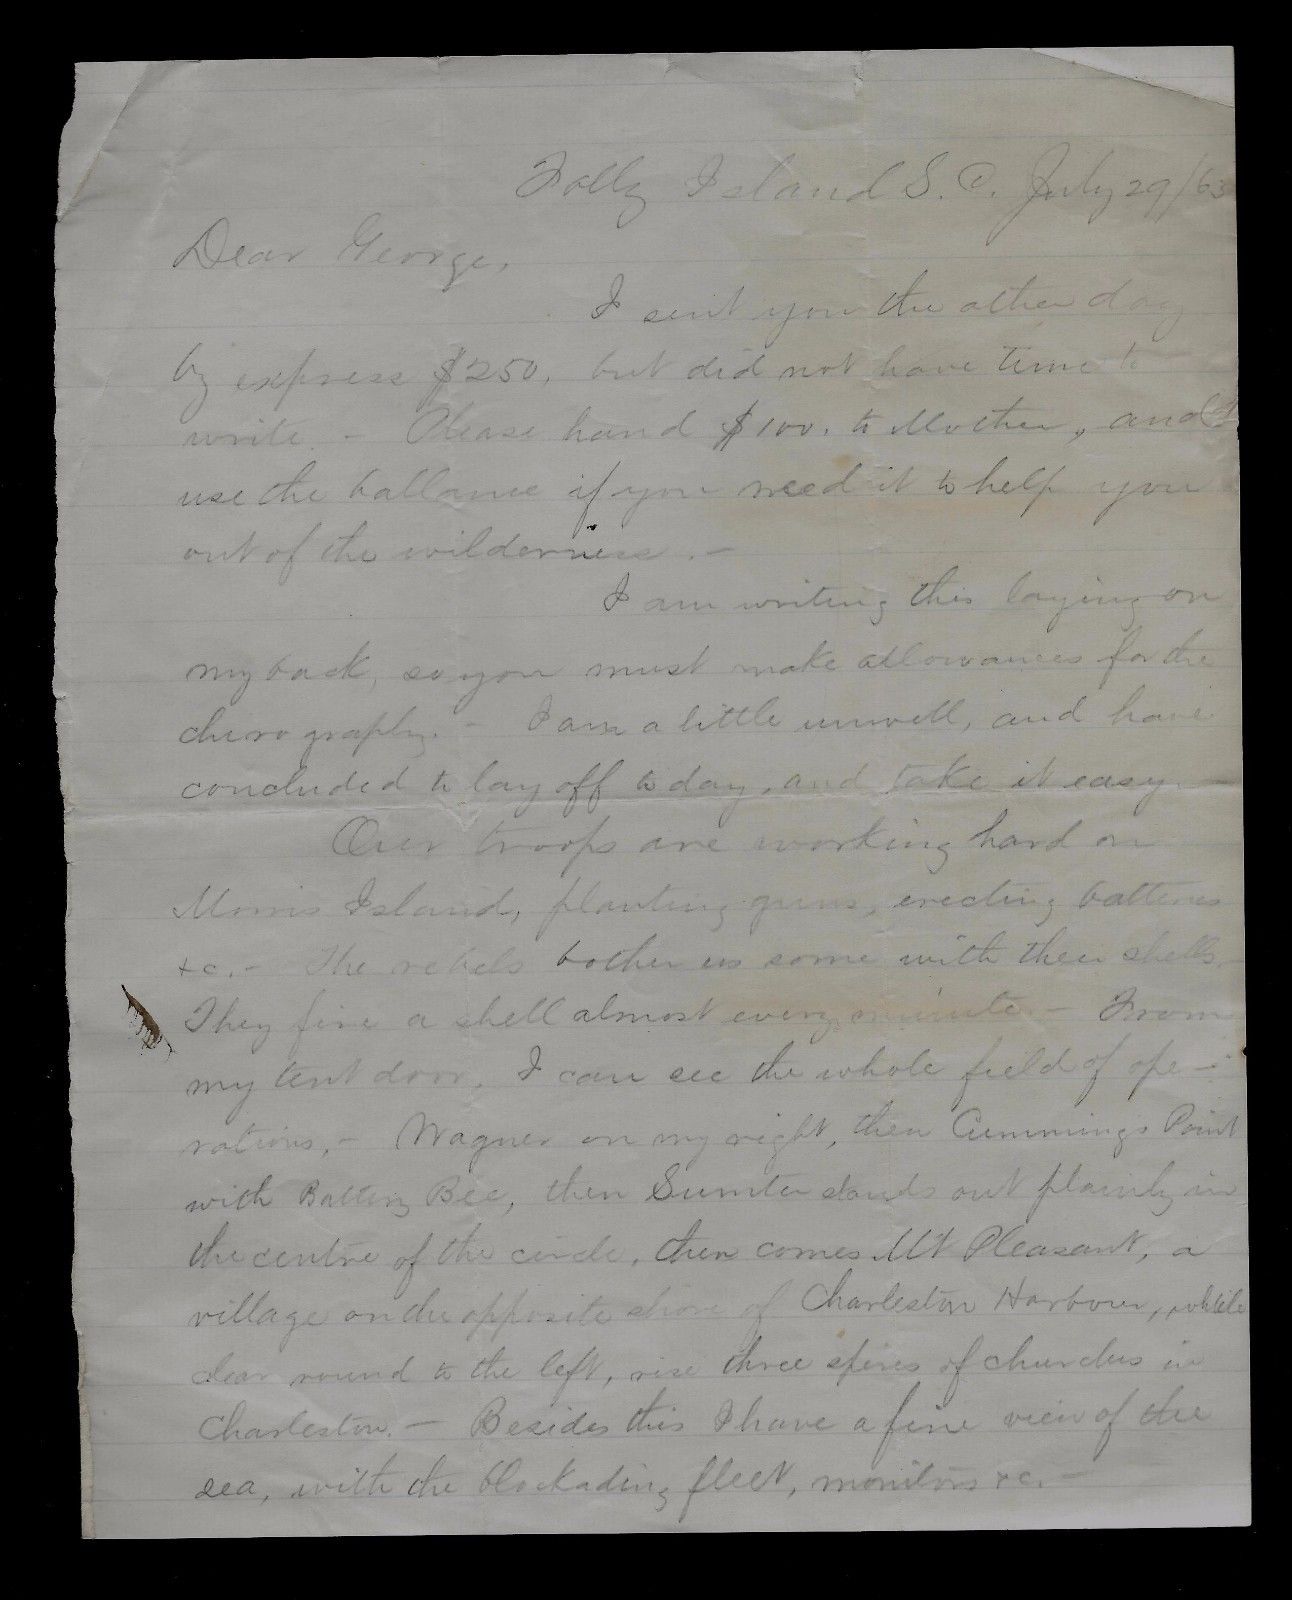 Folly Island S. C. July 29/63
Dear George,
I sent you the other day
by express $250. but did not have time to
write - Please hand $100. to Mother, and
use the ballance if you need it to help you
out of the wilderness. -
I am writing this laying on
my back, so you must make allowances for the
chirography. - I am a little unwell, and have
concluded to lay off to day, and take it easy -
Our troops are working hard on
Morris Island, planting guns, erecting batteries
&c. - The rebels bother us some with their shells. -
They fire a shell almost every minute - From
my tent door, I can see the whole field of ope-
rations, - Wagner on my right, then Cummings Point
with Battery Bee, then Sumter stands out plainly in
the centre of the circle, then comes Mt Pleasant, a
village on the opposite shore of Charleston Harbour, while
clear round to the left, rise three spires of churches in
Charleston. - Besides this I have a fine view of the
sea, with the blockading fleet, monitors &c. -